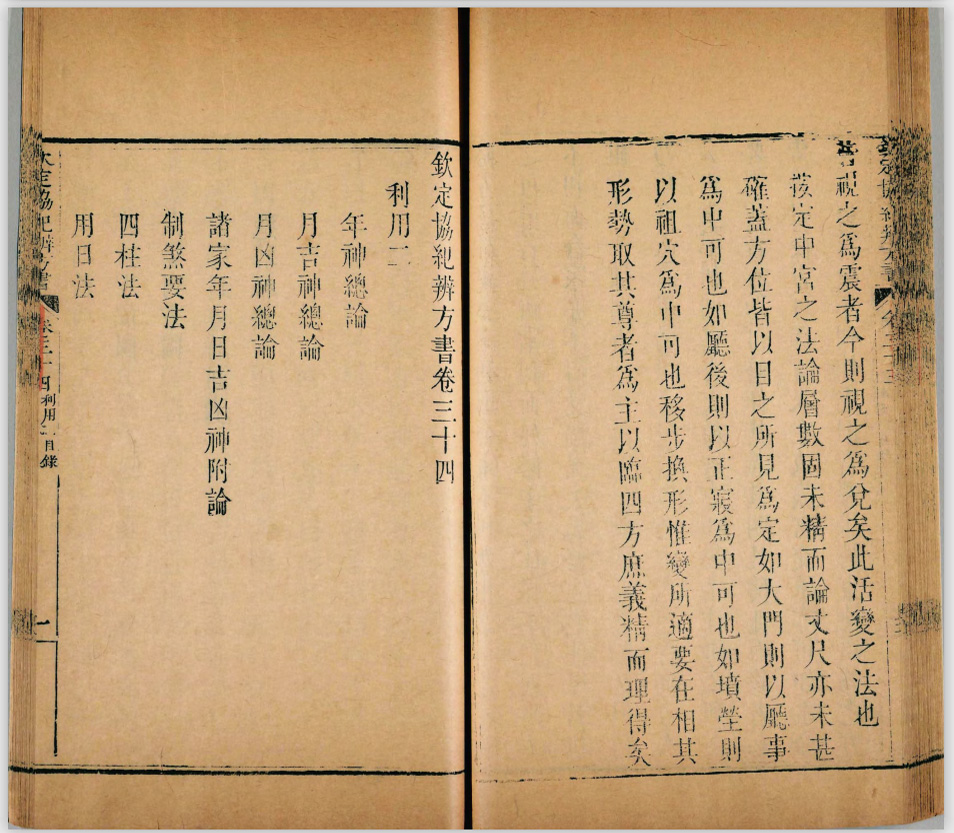 昔視之為震者今則視之為兌矣此活變之法也
按定中宮之法論層數固未精而論丈尺亦未甚
確蓋方位皆以目之所見為定如大門則以廳事
為中可也如廳後則以正寢為中可也如墳塋則
以祖穴為中可也移步換形惟變所適要在相其
形勢取其尊者為主以臨四方庶義精而理得矣
欽定協紀辨方書卷三十四
利用二
年神總論
月吉神總論
月凶神總論
諸家年月日吉凶神附論
制煞要法
四柱法
用日法
卷三十四 利用二目錄 一